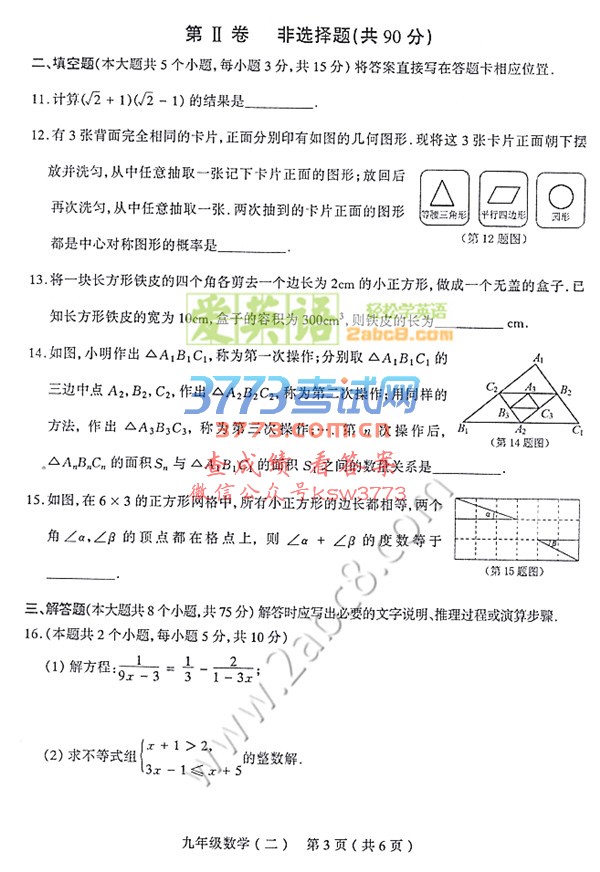 第 Ⅱ 卷　非选择题(共 90 分)
二、填空题(本大题共 5 个小题,每小题 3 分,共 15 分) 将答案直接写在答题卡相应位置.
11.计算(√2 + 1)(√2 − 1) 的结果是________.
12.有 3 张背面完全相同的卡片,正面分别印有如图的几何图形.现将这 3 张卡片正面朝下摆
放并洗匀,从中任意抽取一张记下卡片正面的图形;放回后
再次洗匀,从中任意抽取一张.两次抽到的卡片正面的图形
都是中心对称图形的概率是________.
等腰三角形 平行四边形 圆形
(第 12 题图)
13.将一块长方形铁皮的四个角各剪去一个边长为 2cm 的小正方形,做成一个无盖的盒子.已
知长方形铁皮的宽为 10cm,盒子的容积为 300cm³,则铁皮的长为________ cm.
爱英语 轻松学英语
2abc8.com
14.如图,小明作出 △A₁B₁C₁,称为第一次操作;分别取 △A₁B₁C₁ 的
三边中点 A₂,B₂,C₂,作出 △A₂B₂C₂,称为第二次操作;用同样的
方法,作出 △A₃B₃C₃,称为第三次操作;….第 n 次操作后,
△AₙBₙCₙ 的面积 Sₙ 与 △A₁B₁C₁ 的面积 S₁ 之间的数量关系是________.
A₁
C₂ A₃ B₂
B₃ C₃
B₁ A₂ C₁
(第 14 题图)
3773考试网
www.3773.com.cn
查成绩 看答案
微信公众号ksw3773
15.如图,在 6 × 3 的正方形网格中,所有小正方形的边长都相等,两个
角 ∠α,∠β 的顶点都在格点上,则 ∠α + ∠β 的度数等于
________.
α
β
(第 15 题图)
三、解答题(本大题共 8 个小题,共 75 分) 解答时应写出必要的文字说明、推理过程或演算步骤.
16.(本题共 2 个小题,每小题 5 分,共 10 分)
(1) 解方程:1/(9x − 3) = 1/3 − 2/(1 − 3x);
(2) 求不等式组{x + 1 > 2, 3x − 1 ⩽ x + 5 的整数解.
www.2abc8.com
九年级数学(二)　第 3 页(共 6 页)